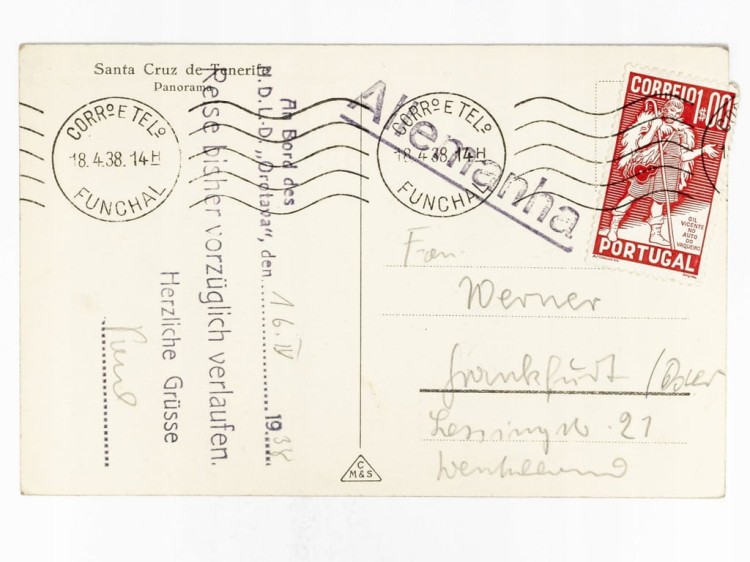 Santa Cruz de Tenerife
Panorama
CORRº E TELº
18.4.38.14H
FUNCHAL
An Bord des
N.D.L.D. „Orotava“, den 16.IV 1938
Reise bisher vorzüglich verlaufen.
Herzliche Grüsse
Allemanha
CORRº E TELº
18.4.38.14H
FUNCHAL
CORREIO 1$00
GIL
VICENTE
NO
AUTO
DO
VAQUEIRO
PORTUGAL
Werner
Frankfurt / Oder
Lessingstr. 21
C
M&S